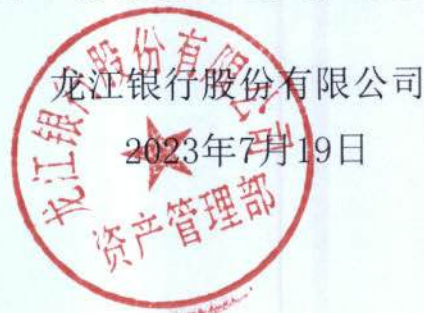 龙江银行股份有限公司
2023年7月19日
龙江银行股份有限公司
资产管理部